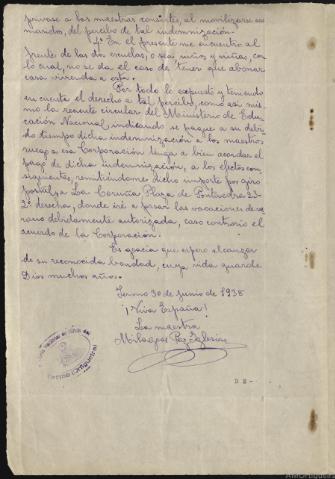 privase a las maestras consortes, al movilizarse sus
maridos, del percibo de tal indemnización.
4ª En el presente me encuentro al
frente de las dos escuelas, o sea, niños y niñas, con
lo cual, no se da el caso de tener que abonar
casa vivienda a otro.
Por todo lo expuesto y teniendo
en cuenta el derecho a tal percibo, como así mis-
mo la reciente circular del Ministerio de Edu-
cación Nacional indicando se pague a su debi-
do tiempo dicha indemnización a los maestros
ruego a esa Corporación tenga a bien acordar el
pago de dicha indemnización, a los efectos con-
siguientes, remitiéndome dicho importe por giro
postal, a La Coruña Plaza de Pontevedra 23-
2º derecha, donde iré a pasar las vacaciones de ve-
rano debidamente autorizada, caso contrario el
acuerdo de la Corporación.
Es gracia que espero alcanzar
de su reconocida bondad, cuya vida guarde
Dios muchos años.
30 de junio de 1938
¡Viva España!
La maestra
Milagros Paz Iglesias